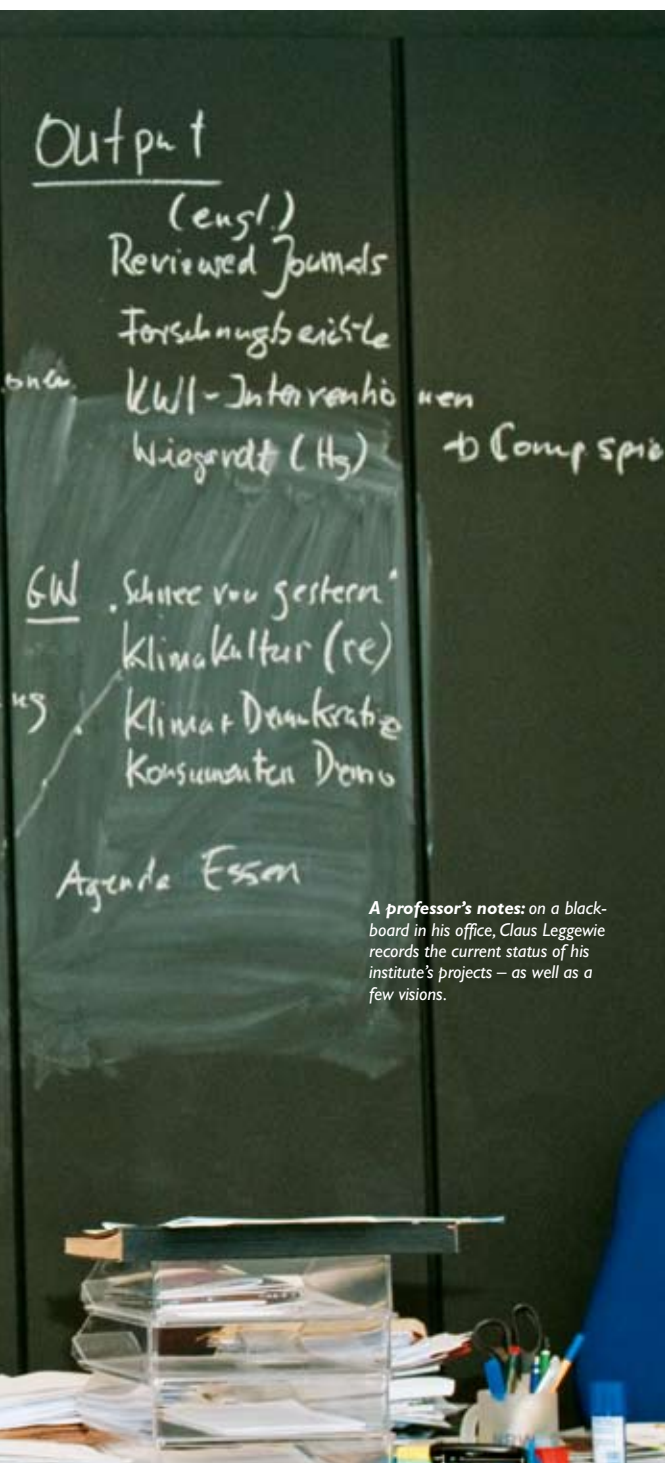 Output
(engl.)
Reviewed Journals
Forschungsberichte
KWI-Interventionen
Wiegardt (Hg) → Comp spie
GW „Schnee von gestern“
KlimaKultur (re)
Klima + Demokratie
Konsumenten Demo
Agenda Essen
A professor’s notes: on a black-
board in his office, Claus Leggewie
records the current status of his
institute’s projects – as well as a
few visions.